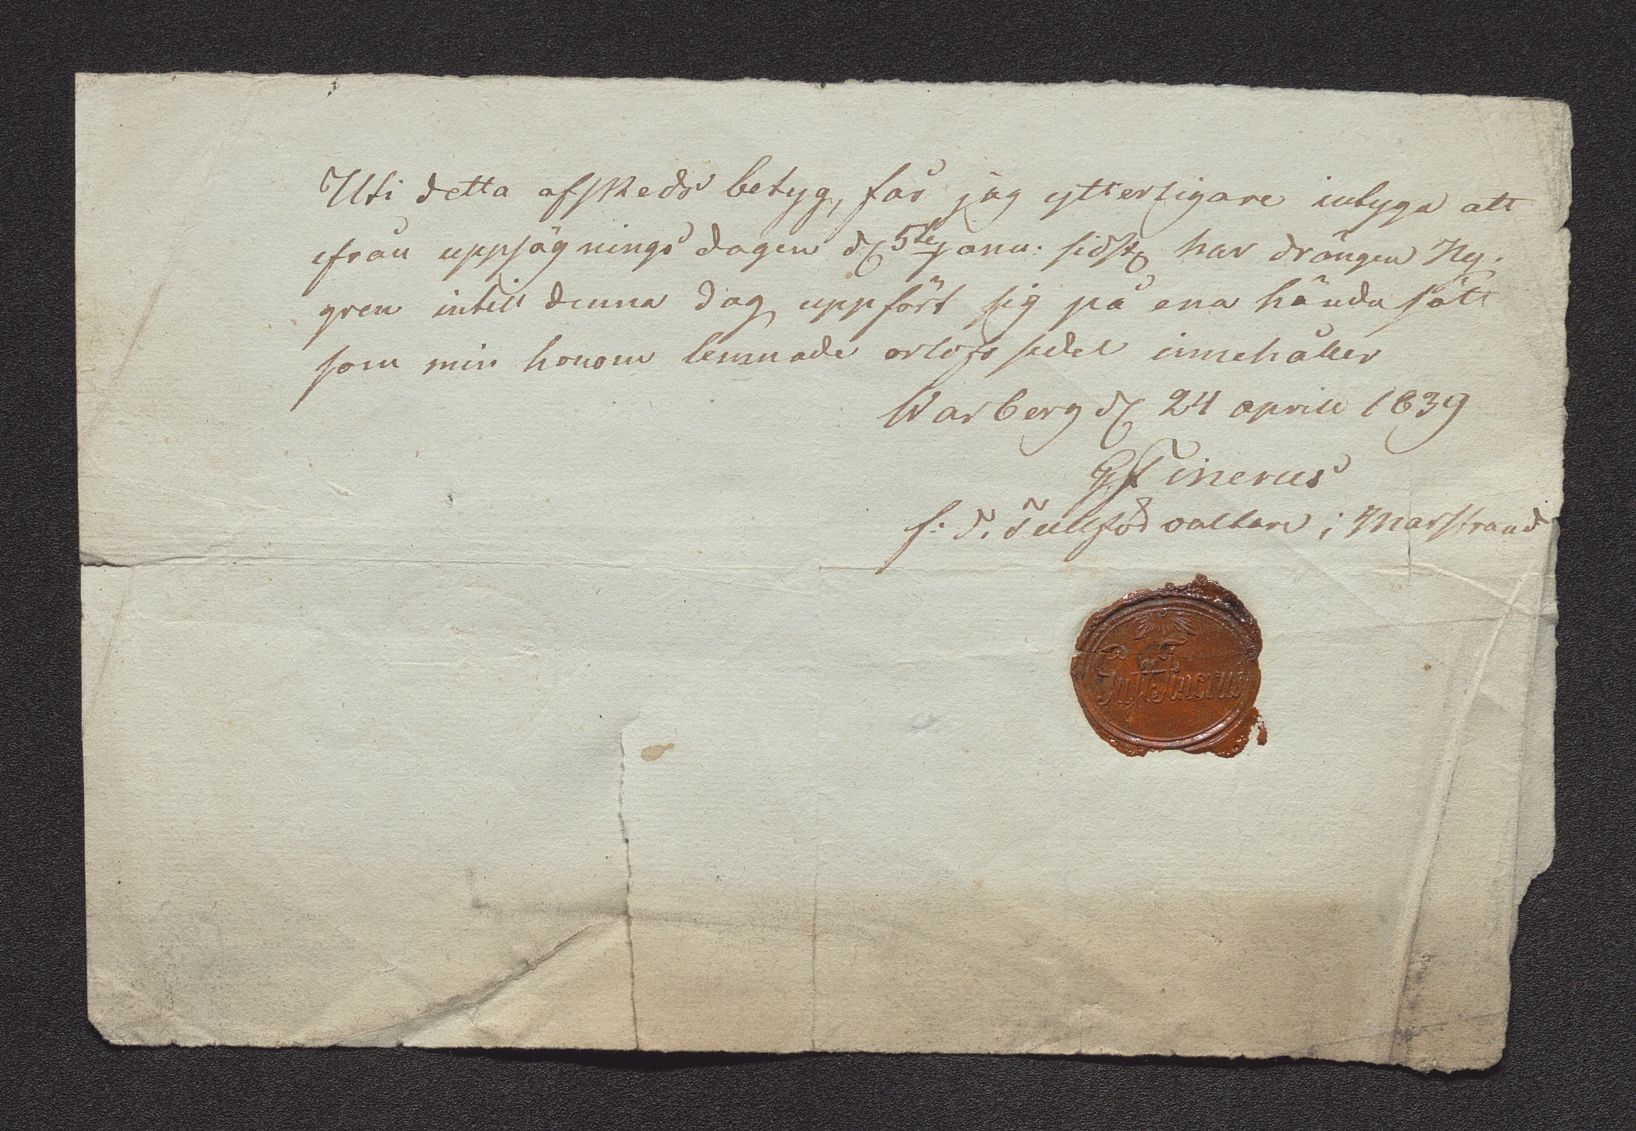 Uti detta afskeds betyg, får jag ytterligare intyga att
ifrån uppsägnings dagen d. 5te Janu: sidst. har drängen Ny-
gren intill denna dag uppfört sig på ena hända sätt
som min honom lemnade orlofs sedel innehåller
Warberg d. 24 aprill 1839
G Finerus
f. d. Tullförvaltare i Marstrand